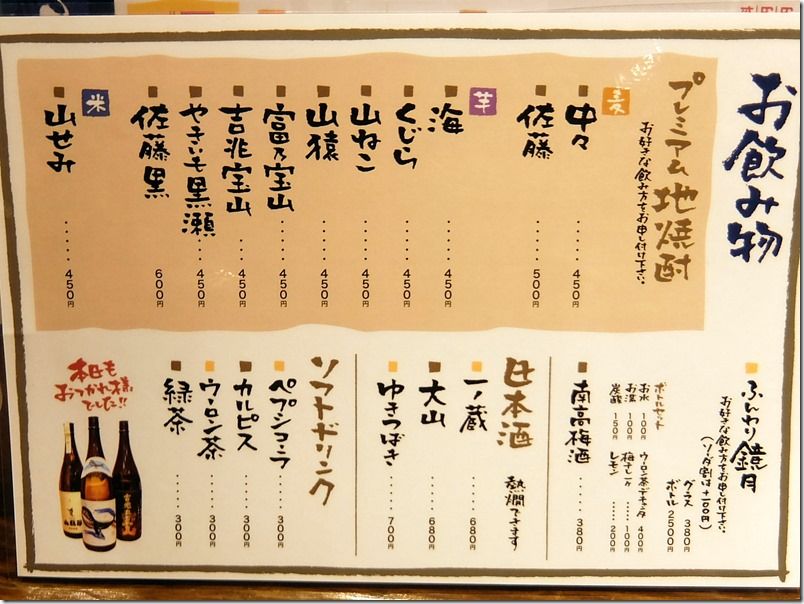 お飲み物
プレミアム地焼酎
お好きな飲み方をお申し付け下さい。
麦
中々……450円
佐藤……500円
芋
海……450円
くじら……450円
山ねこ……450円
山猿……450円
富乃宝山……450円
吉兆宝山……450円
やきいも黒瀬……450円
佐藤黒……600円
米
山せみ……450円
ふんわり鏡月
お好きな飲み方をお申し付け下さい。
(ソーダ割は+100円)
グラス 380円
ボトル 2500円
ボトルセット
お水 100円
お湯 100円
炭酸 150円
ウーロン茶デキャンタ 400
梅干し一ヶ……100
レモン……200円
南高梅酒……380円
日本酒
熱燗できます
一ノ蔵……680円
大山……680円
ゆきつばき……700円
ソフトドリンク
ペプシコーラ……300円
カルピス……300円
ウーロン茶……300円
緑茶……300円
本日も
おつかれ様
でした!!